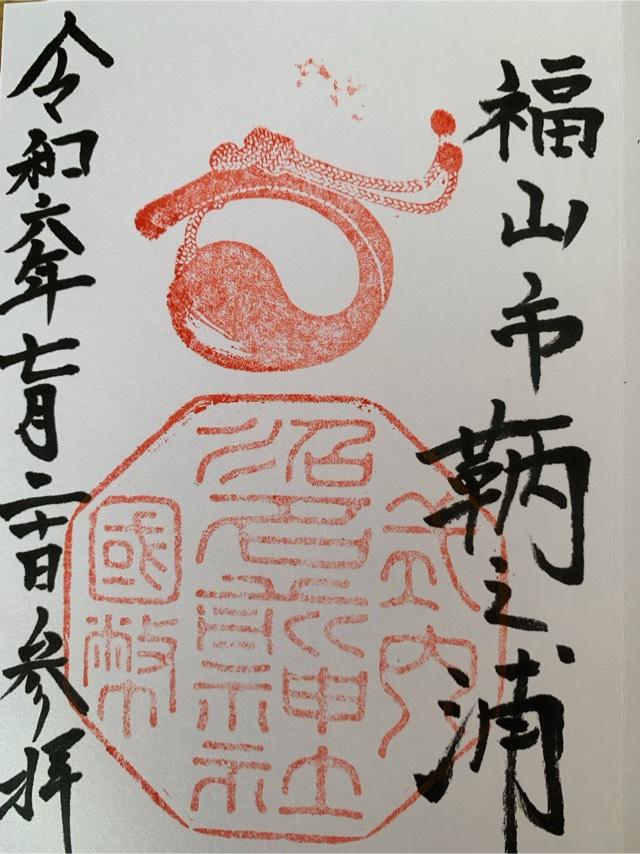 福山市鞆之浦
式内
沼名前神社
國幣
令和六年七月二十日参拝